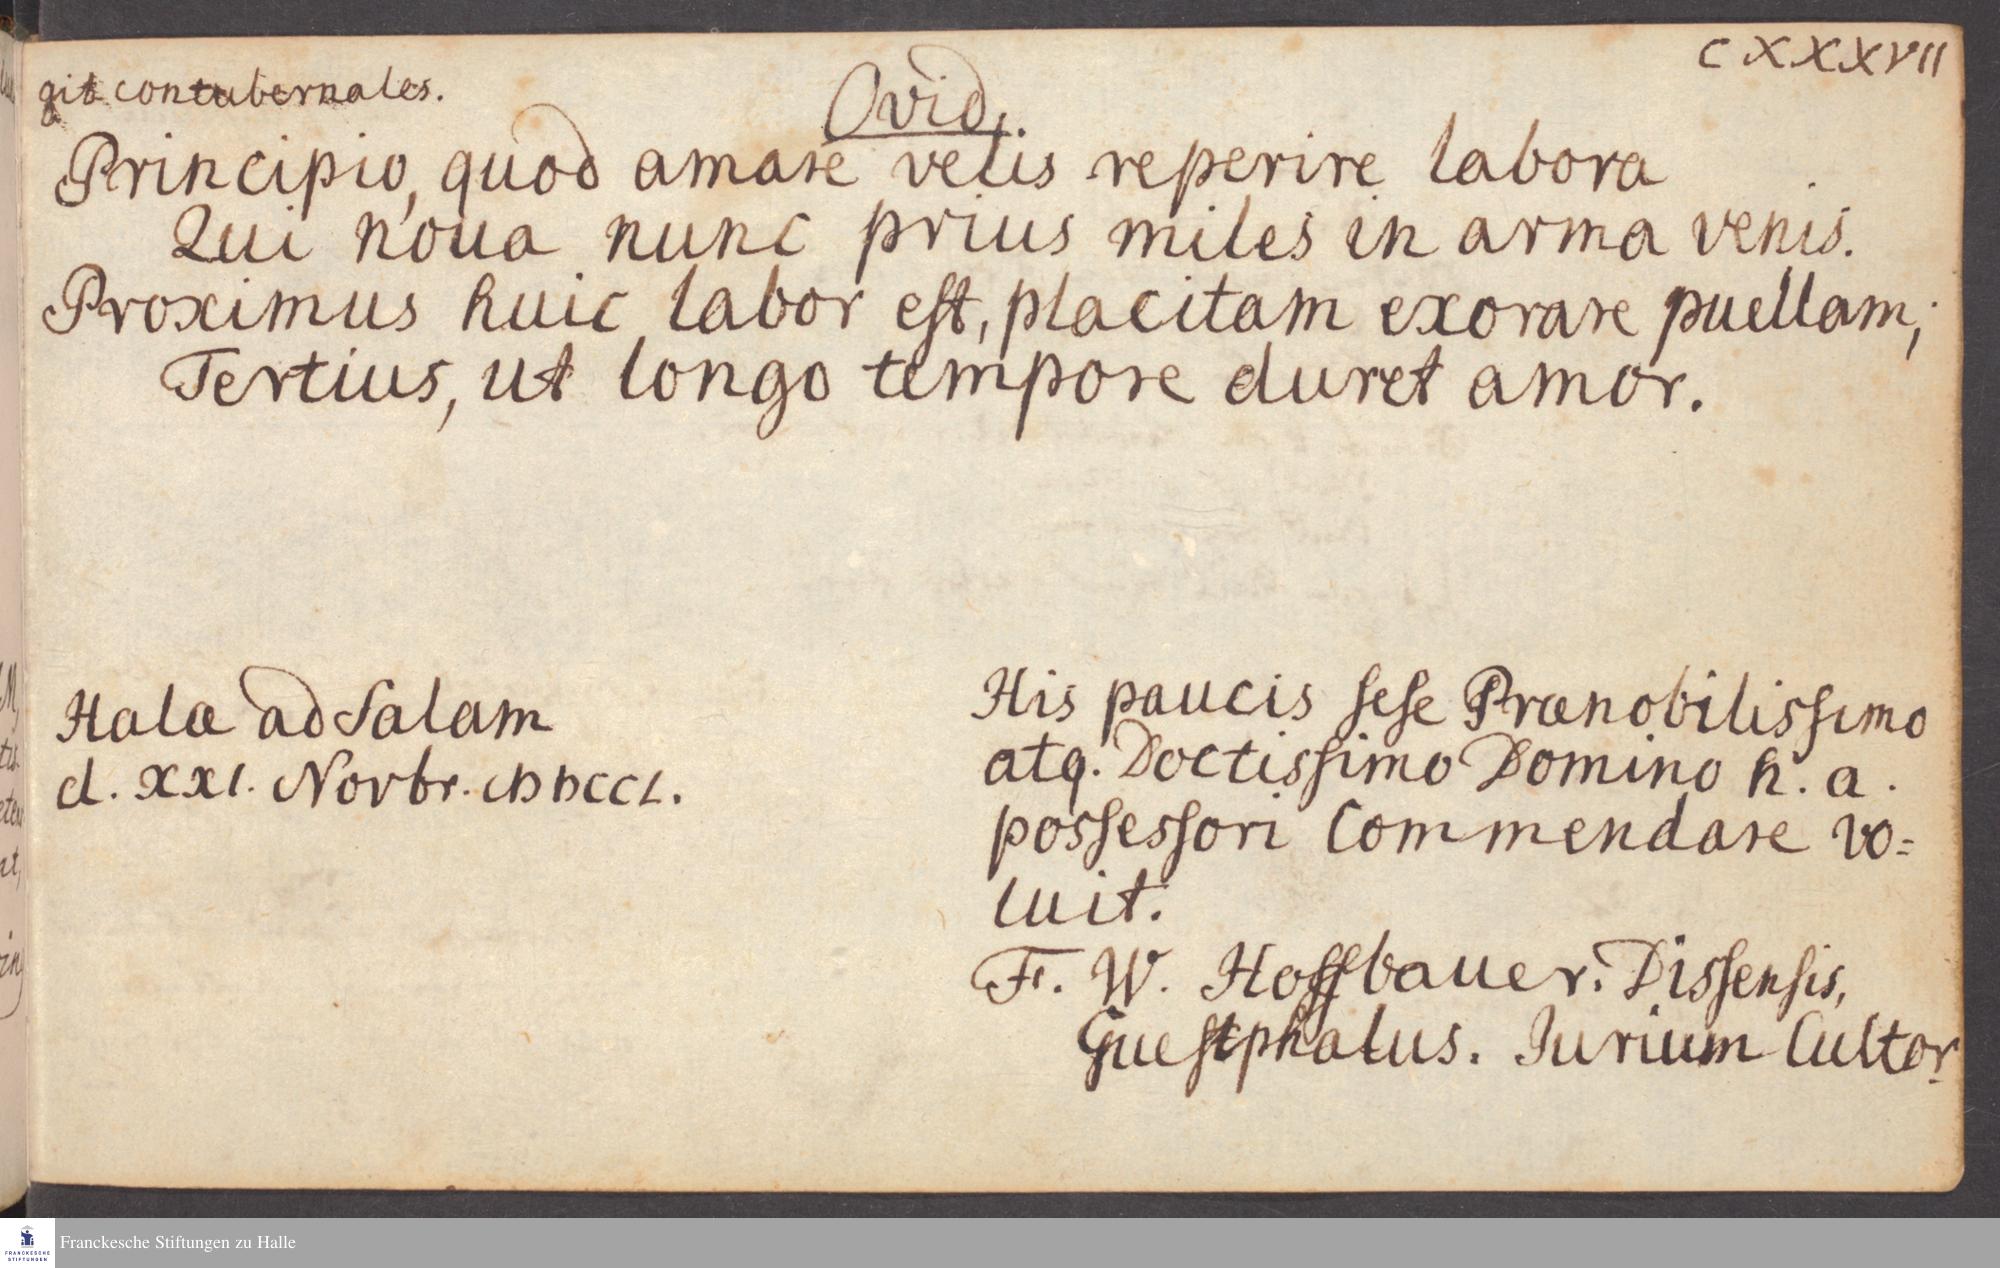 CXXXVII
git contubernales.
Ovid.
Principio, quod amare velis reperire labora
Qui noua nunc prius miles in arma venis.
Proximus huic labor est, placitam exorare puellam;
Tertius, ut longo tempore duret amor.
Halae ad Salam
d. XXI. Novbr. MDCCL.
His paucis sese Praenobilissimo
atq. Doctissimo Domino h. a.
possessori Commendare vo=
luit.
F. W. Hoffbauer. Dissensis,
Guestphalus. Jurium Cultor.
Franckesche Stiftungen zu Halle
FRANCKESCHE
STIFTUNGEN